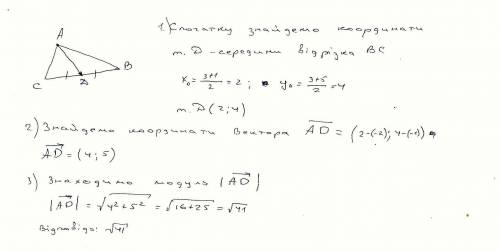 1) Спочатку знайдемо координати
т. D - середини відрізка BC
x₀ = (3+1)/2 = 2; y₀ = (3+5)/2 = 4
т. D (2; 4)
A
B
C
D
2) Знайдемо координати вектора AD⃗ = (2-(-2); 4-(-1))
AD⃗ = (4; 5)
3) Знаходимо модуль |AD⃗|
|AD⃗| = √(4²+5²) = √(16+25) = √41
Відповідь: √41